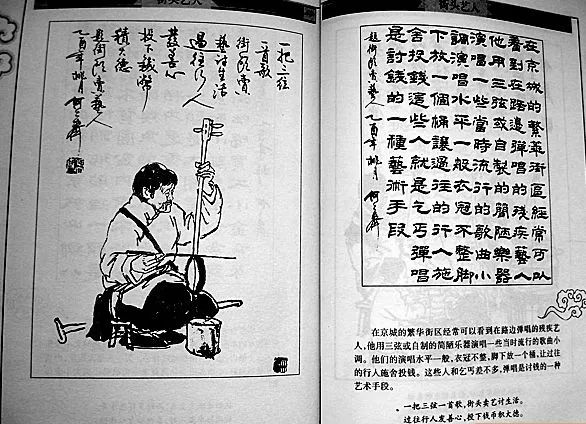 街头艺人
一把三弦
一首歌
街頭賣
藝討生活
過往行人
發善心
投下錢幣
積大德
題街頭賣藝人
乙酉年桃月
在京城的繁華街區經常可以
看到在路邊彈唱的殘疾藝人
他用三弦或自製的簡陋樂器
演唱一些當時流行的歌曲小
調演唱水平一般衣冠不整脚
下放一個桶讓過往的行人施
舍投錢這些人就是乞丐彈唱
是討錢的一種藝術手段
題街頭賣藝人 乙酉年桃月
在京城的繁华街区经常可以看到在路边弹唱的残疾艺
人，他用三弦或自制的简陋乐器演唱一些当时流行的歌曲小
调。他们的演唱水平一般，衣冠不整，脚下放一个桶，让过往
的行人施舍投钱。这些人和乞丐差不多，弹唱是讨钱的一种
艺术手段。
一把三弦一首歌，街头卖艺讨生活。
过往行人发善心，投下钱币积大德。